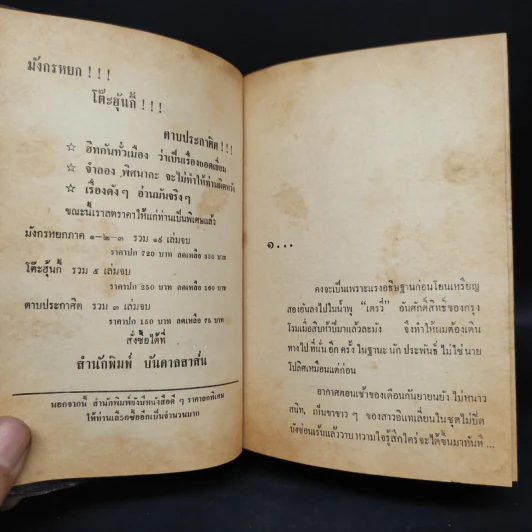 มังกรหยก ! ! !
โต๊ะฮุ้นกี้ ! ! !
ดาบประกาศิต ! ! !
☆ ฮิทกันทั่วเมือง ว่าเป็นเรื่องยอดเยี่ยม
☆ จำลอง พิศนาคะ จะไม่ทำให้ท่านผิดหวัง
☆ เรื่องดัง ๆ อ่านมันจริง ๆ
ขณะนี้เราลดราคาให้แก่ท่านเป็นพิเศษแล้ว
มังกรหยกภาค ๑-๒-๓ รวม ๑๙ เล่มจบ
ราคาปก 720 บาท ลดเหลือ บาท
โต๊ะฮุ้นกี้ รวม ๕ เล่มจบ
ราคาปก 250 บาท ลดเหลือ 160 บาท
ดาบประกาศิต รวม ๓ เล่มจบ
ราคาปก 150 บาท ลดเหลือ 75 บาท
สั่งซื้อได้ที่
สำนักพิมพ์ บันดาลสาส์น
นอกจากนี้ สำนักพิมพ์ยังมีหนังสือดี ๆ ราคาลดพิเศษ
ให้ท่านเลือกซื้ออีกเป็นจำนวนมาก
๑...
คงจะเป็นเพราะแรงอธิษฐานก่อนโยนเหรียญ
สองอันลงไปในน้ำพุ "เตรวี่" อันศักดิ์สิทธิ์ของกรุง
โรมเมื่อสิบกว่าปีมาแล้วละมัง จึงทำให้ผมต้องเดิน
ทางไปที่นั่นอีกครั้ง ในฐานะนักประพันธ์ ไม่ใช่นาย
โปลิศเหมือนแต่ก่อน
อากาศตอนเช้าของเดือนกันยายนยัง ไม่หนาว
สนิท, เห็นขาขาว ๆ ของสาวอิตาเลี่ยนในชุดไม่ปิด
บังซ่อนเร้นแล้ววาบหวามใจรู้สึกใคร่จะได้ขึ้นมาทันที ...